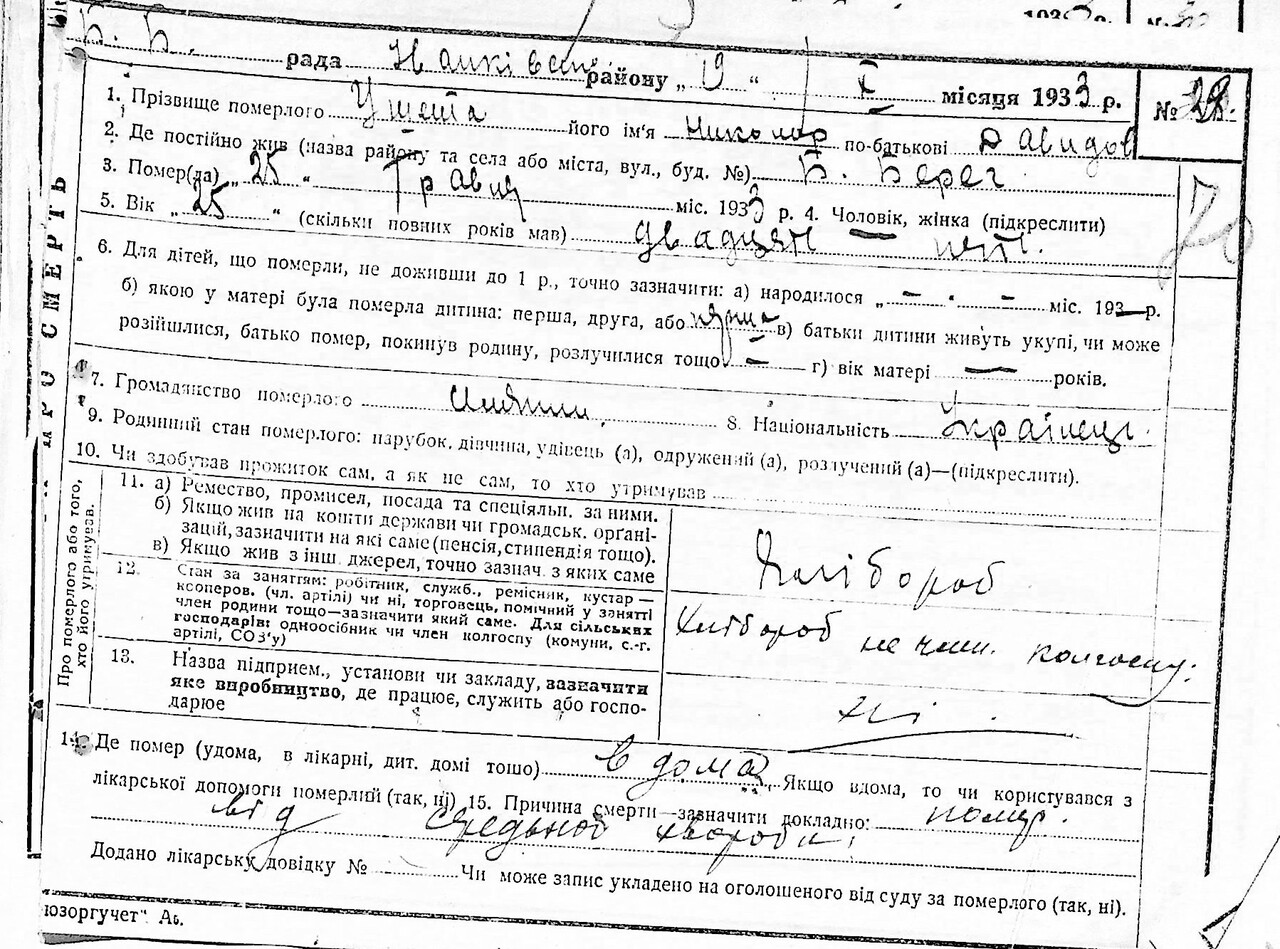 Б. Б. рада района „19“ X місяця 1933 р. № 28.
1. Прізвище померлого його ім'я Николар по-батькові Давидов
2. Де постійно жив (назва району та села або міста, вул., буд. №) Б. Берег
3. Помер(ла) „25“ Травня міс. 1933 р. 4. Чоловік, жінка (підкреслити)
5. Вік „25“ (скільки повних років мав) двадцять — пять.
6. Для дітей, що померли, не доживши до 1 р., точно зазначити: а) народилося „—“ — міс. 193— р.
б) якою у матері була померла дитина: перша, друга, або в) батьки дитини живуть укупі, чи може
розійшлися, батько помер, покинув родину, розлучилися тощо — г) вік матері — років.
7. Громадянство померлого 8. Національність Українец.
9. Родинний стан померлого: парубок, дівчина, удівець (а), одружений (а), розлучений (а)—(підкреслити).
10. Чи здобував прожиток сам, а як не сам, то хто утримував
Про померлого або того, хто його утримував.
11. а) Ремество, промисел, посада та спеціяльн. за ними.
б) Якщо жив на кошти держави чи громадськ. орґані-
зацій, зазначити на які саме (пенсія, стипендія тощо).
в) Якщо жив з інш. джерел, точно зазнач. з яких саме
Хлібороб
12. Стан за заняттям: робітник, служб., ремісник, кустар—
кооперов. (чл. артілі) чи ні, торговець, помічний у занятті
член родини тощо—зазначити який саме. Для сільських
господарів: одноосібник чи член колгоспу (комуни, с.-г.
артілі, СОЗ'у)
Хлібороб не член. колгоспу.
13. Назва підприєм., установи чи закладу, зазначити
яке виробництво, де працює, служить або госпо-
дарює
ні.
14. Де помер (удома, в лікарні, дит. домі тощо) в дома Якщо вдома, то чи користувався з
лікарської допомоги померлий (так, ні) 15. Причина смерти—зазначити докладно: помер.
від хвороби.
Додано лікарську довідку № Чи може запис укладено на оголошеного від суду за померлого (так, ні).
ПРО СМЕРТЬ
70